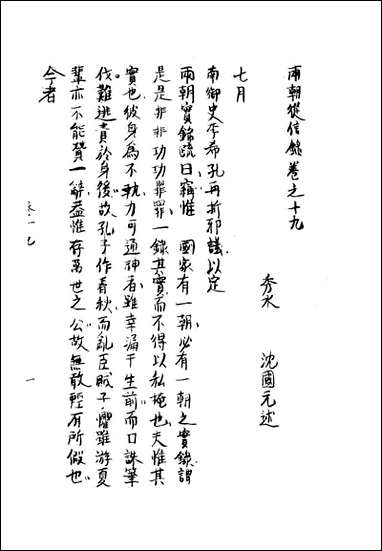 兩朝從信錄卷之十九
秀水 沈國元述
七月
南御史李希孔再折邪議以定
兩朝實錄疏曰竊惟 國家有一朝必有一朝之實錄謂
是是非非功功罪罪一錄其實而不得以私掩也夫惟其
實也彼身為不軌力可通神者雖幸漏于生前而口誅筆
伐難逃責於身後故孔子作春秋而亂臣賊子懼雖游夏
輩亦不能贊一辭盖惟存萬世之公故無敢輕有所假也
今者
卷十九
一